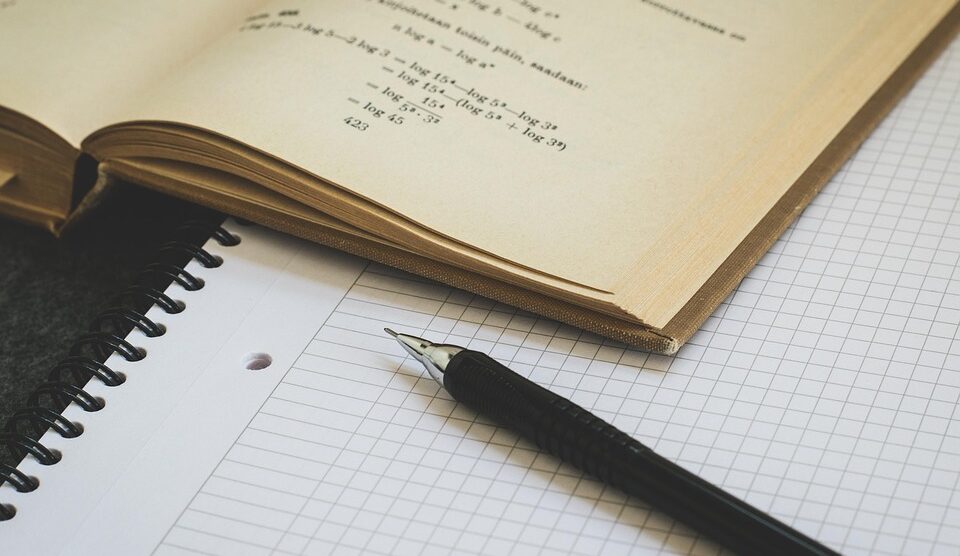 log c⁴
log b — 4log c
toisin päin, saadaan:
n log a = log aⁿ
log 5—2 log 3 = log 15⁴—log 5³—log 3²
= log 15⁴—(log 5³ + log 3²)
= log 15⁴
5³ · 3²
= log 45
423